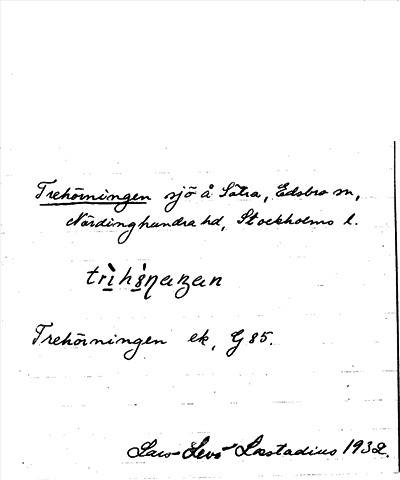 Trehörningen sjö å Sätra, Edsbro sn,
Närdinghundra hd, Stockholms l.
Trehörningen ek, G 85.
Lars-Levi Læstadius 1932.